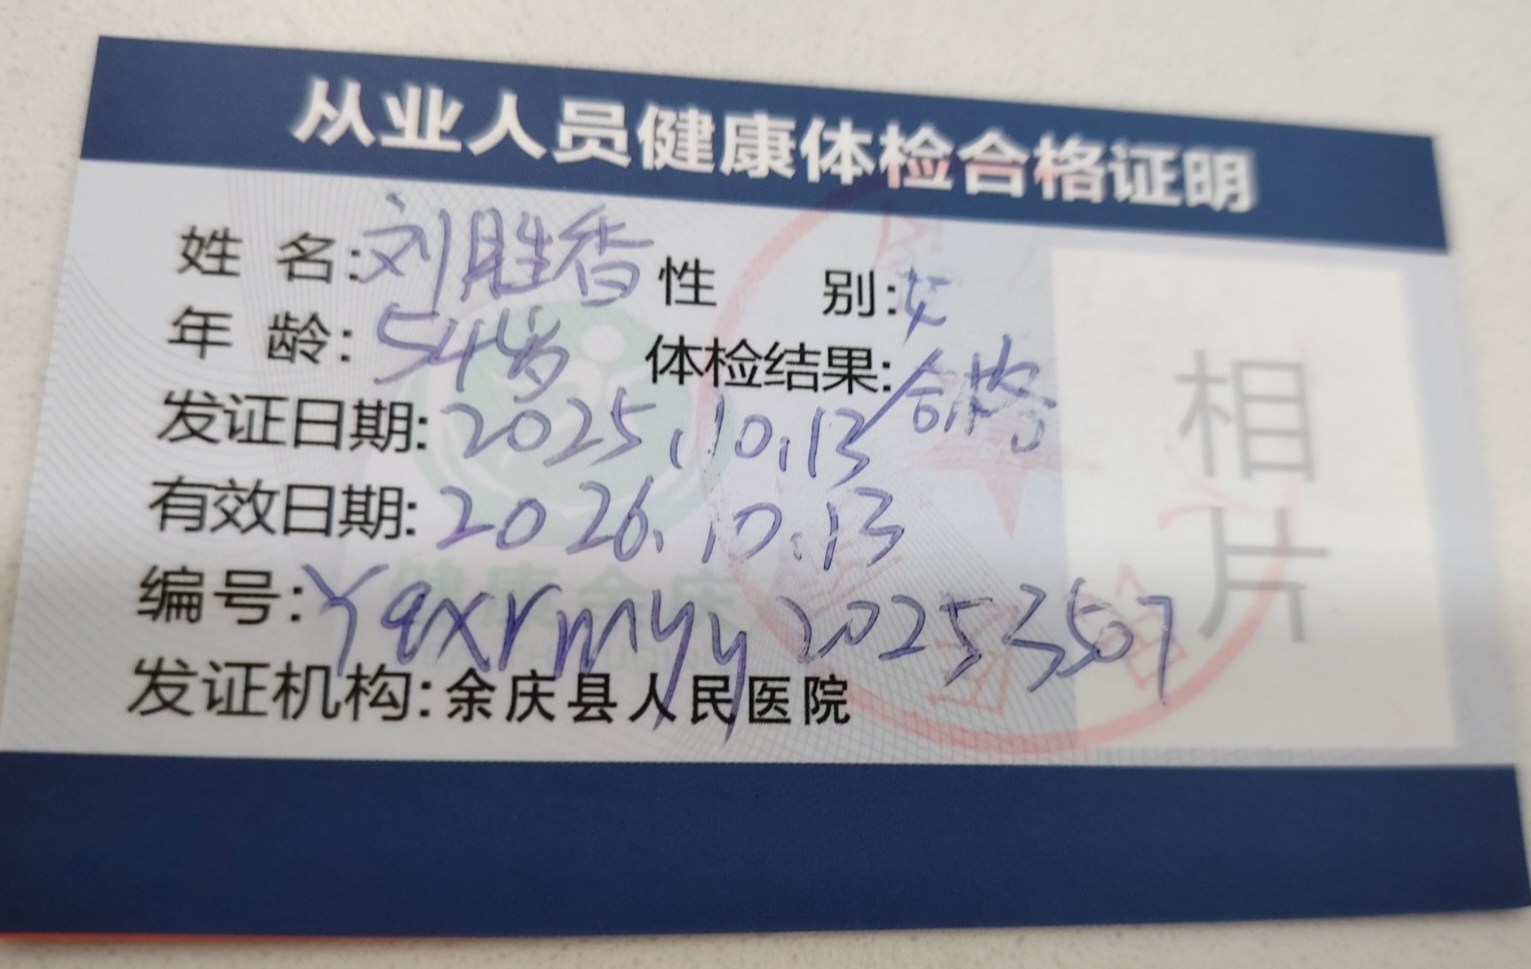 从业人员健康体检合格证明
姓 名:刘胜香 性 别:女
年 龄:54岁 体检结果:合格
发证日期:2025.10.13
有效日期:2026.10.13
编号:Yqxrmyy20253507
发证机构:余庆县人民医院
相
片
健康余庆